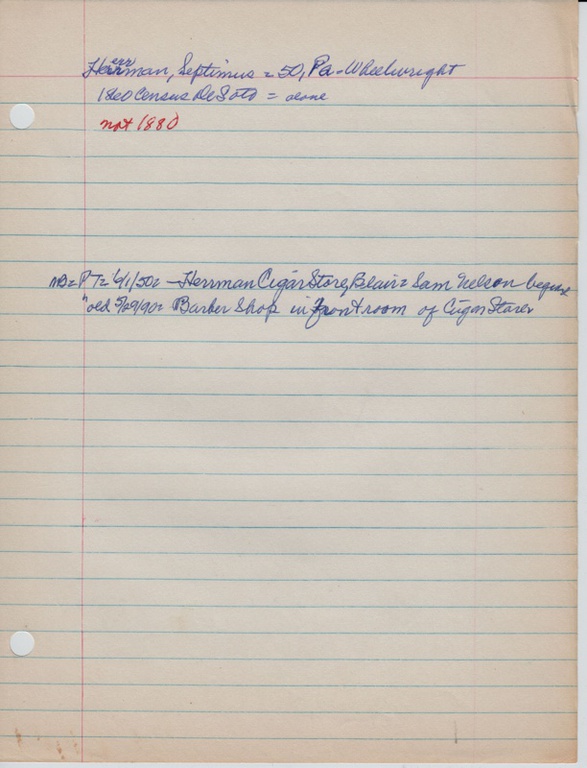 Herrman, Septimus = 50, Pa - Wheelwright
1860 Census DeSoto = alone
not 1880
NB= PT= 6/1/50= - Herrman Cigar Store, Blair= Sam Nelson
"old 5/29/90= Barber Shop in front room of Cigar Store